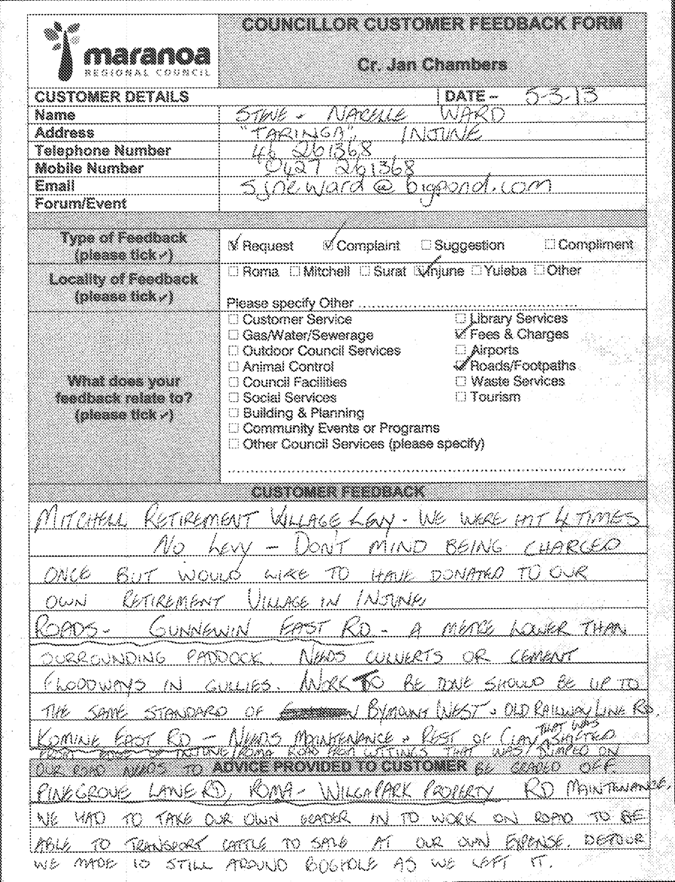 COUNCILLOR CUSTOMER FEEDBACK FORM
maranoa
REGIONAL COUNCIL
Cr. Jan Chambers
CUSTOMER DETAILS DATE - 5-3-13
Name STEVE + NARELLE WARD
Address "TARINGA", INJUNE
Telephone Number 46 261368
Mobile Number 0427 261368
Email sjneward@bigpond.com
Forum/Event
Type of Feedback
(please tick ✓)
✓ Request ✓ Complaint ☐ Suggestion ☐ Compliment
Locality of Feedback
(please tick ✓)
☐ Roma ☐ Mitchell ☐ Surat ✓ Injune ☐ Yuleba ☐ Other
Please specify Other
What does your
feedback relate to?
(please tick ✓)
☐ Customer Service ☐ Library Services
☐ Gas/Water/Sewerage ✓ Fees & Charges
☐ Outdoor Council Services ☐ Airports
☐ Animal Control ✓ Roads/Footpaths
☐ Council Facilities ☐ Waste Services
☐ Social Services ☐ Tourism
☐ Building & Planning
☐ Community Events or Programs
☐ Other Council Services (please specify)
CUSTOMER FEEDBACK
MITCHELL RETIREMENT VILLAGE LEVY - WE WERE HIT 4 TIMES
NO LEVY - DON'T MIND BEING CHARGED
ONCE BUT WOULD LIKE TO HAVE DONATED TO OUR
OWN RETIREMENT VILLAGE IN INJUNE
ROADS - GUNNEWIN EAST RD - A METRE LOWER THAN
SURROUNDING PADDOCK. NEEDS CULVERTS OR CEMENT
FLOODWAYS IN GULLIES. WORK TO BE DONE SHOULD BE UP TO
THE SAME STANDARD OF BYMOUNT WEST + OLD RAILWAY LINE RD.
KOMINE EAST RD - NEEDS MAINTENANCE + REST OF CLAY THAT WAS SHIFTED
FROM EDGE OF INJUNE/ROMA ROAD FROM CUTTINGS THAT WAS DUMPED ON
OUR ROAD NEEDS TO BE GRADED OFF.
ADVICE PROVIDED TO CUSTOMER
PINEGROVE LANE RD, ROMA - WILGA PARK PROPERTY RD MAINTENANCE.
WE HAD TO TAKE OUR OWN GRADER IN TO WORK ON ROAD TO BE
ABLE TO TRANSPORT CATTLE TO SALE AT OUR OWN EXPENSE. DETOUR
WE MADE IS STILL AROUND BOGHOLE AS WE LEFT IT.